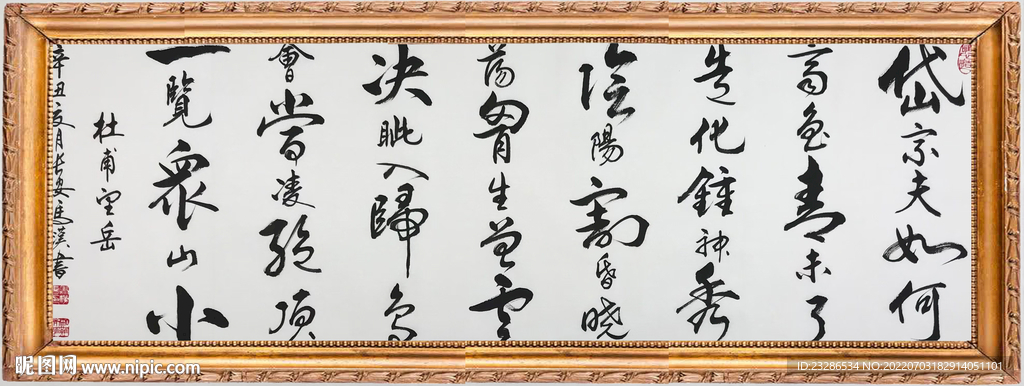 岱宗夫如何
齊魯青未了
造化鍾神秀
陰陽割昏曉
蕩胷生曾雲
决眦入歸鳥
會當凌絶頂
一覽衆山小
杜甫望岳
辛丑夏月長安馬漢書
昵图网 www.nipic.com
ID:23286534 NO:20220703182914051101